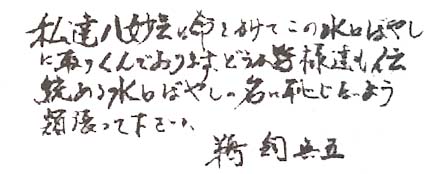 私達八妙会は命をかけてこの水口ばやし
に取りくんでおります。どうか皆様達も伝
統ある水口ばやしの名に恥じないよう
頑張って下さい。
鵜飼兵五